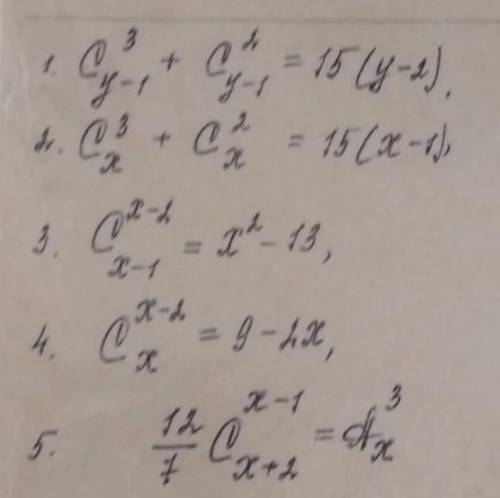 1. C_{y-1}^{3} + C_{y-1}^{2} = 15(y-2),
2. C_{x}^{3} + C_{x}^{2} = 15(x-1),
3. C_{x-1}^{x-2} = x^{2} - 13,
4. C_{x}^{x-2} = 9 - 2x,
5. \frac{12}{7} C_{x+2}^{x-1} = A_{x}^{3}